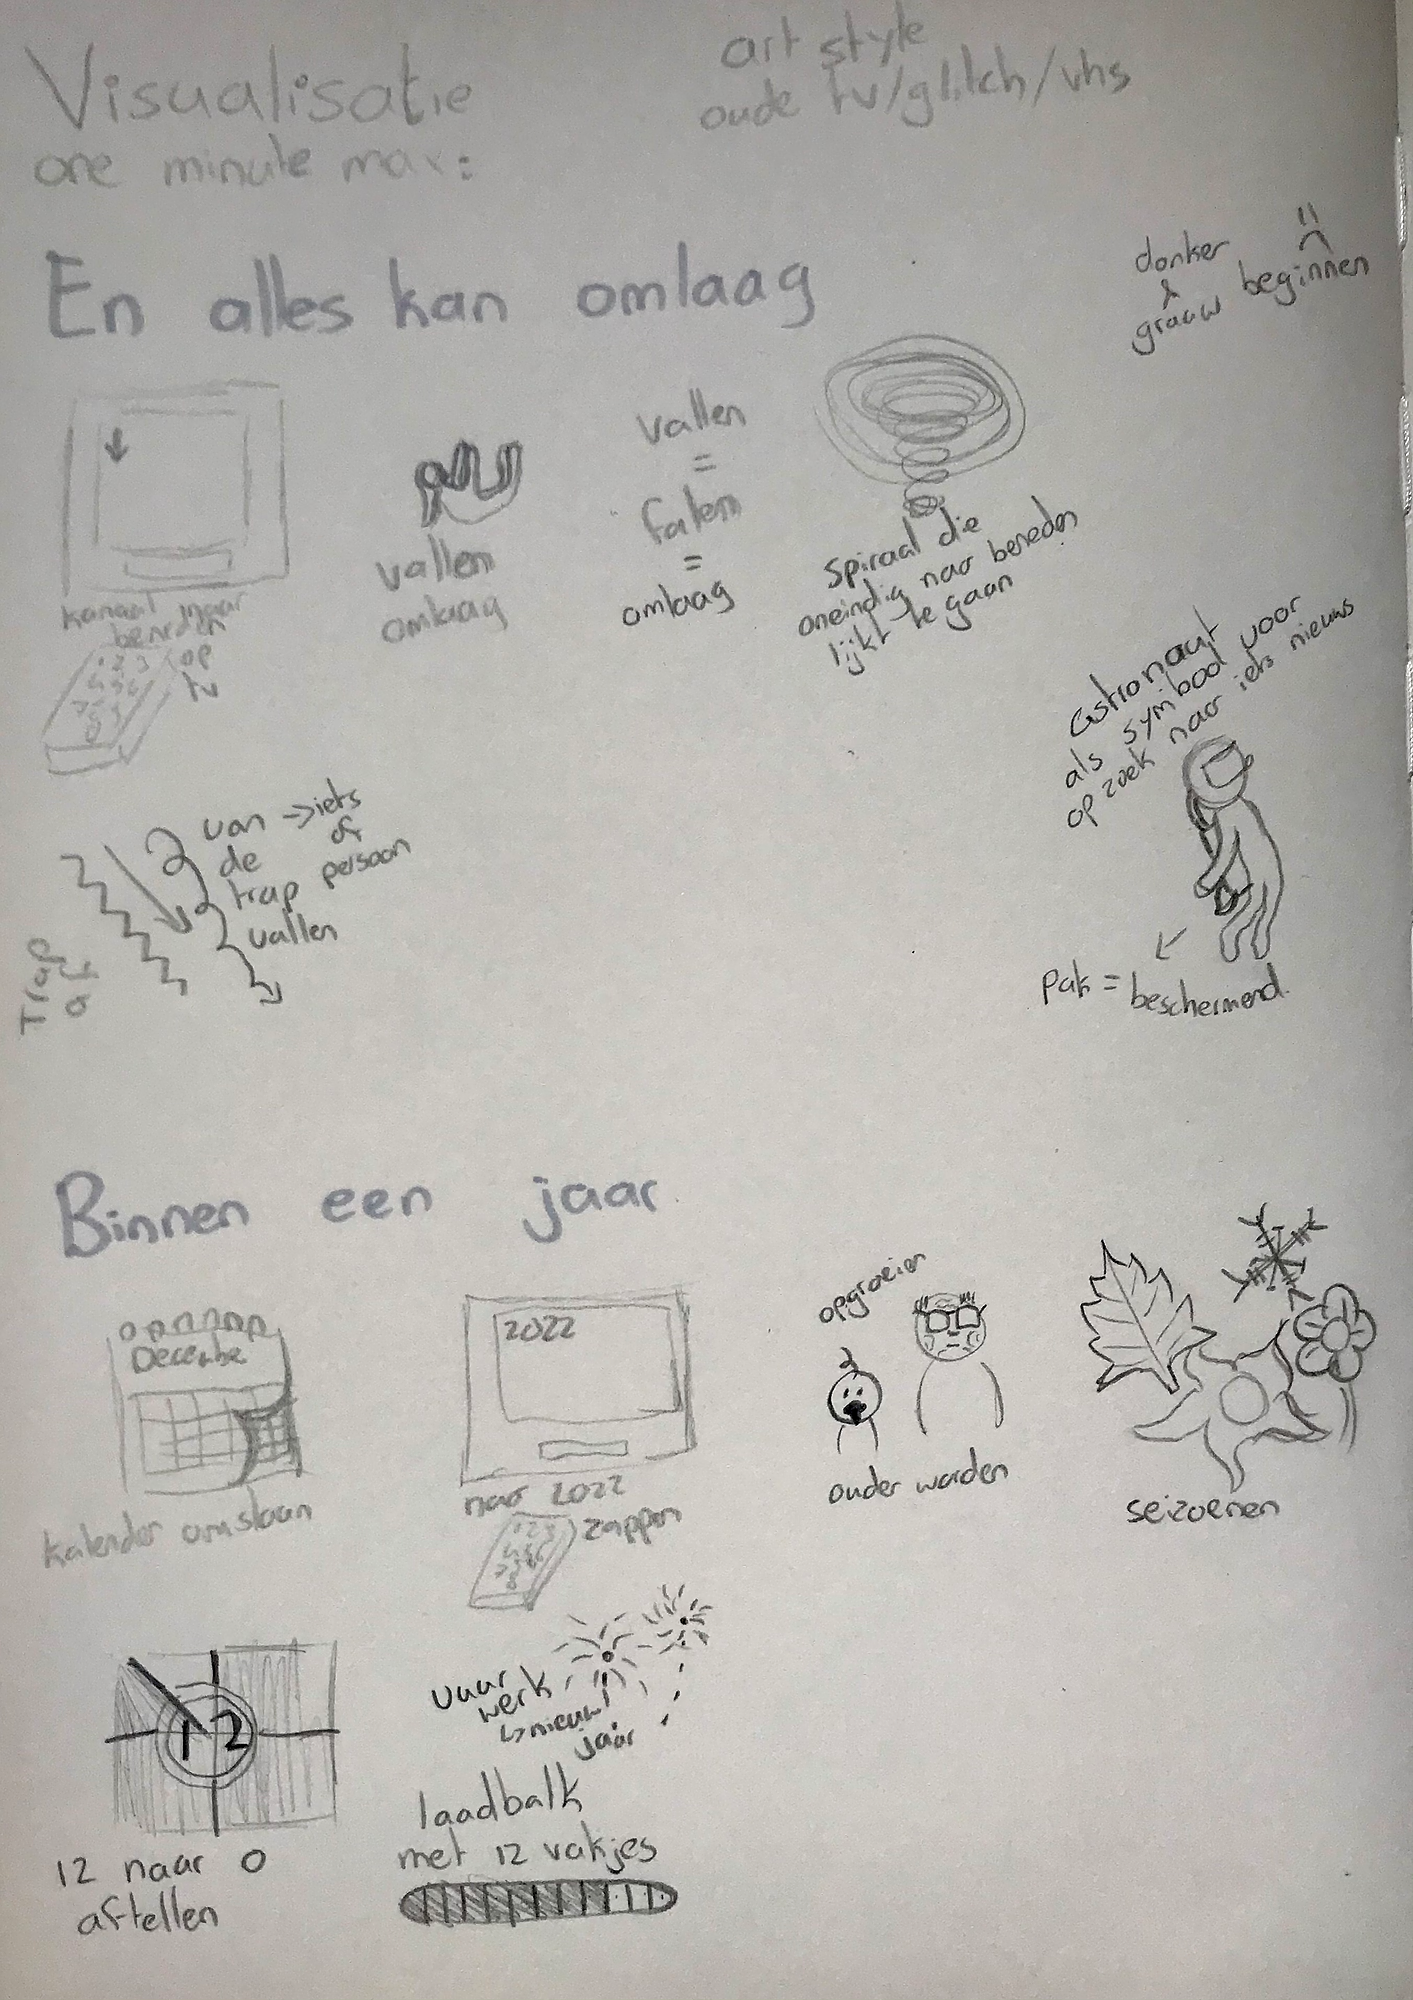 Visualisatie
one minute max:
art style
oude tv/glitch/vhs
En alles kan omlaag
donker
&
grauw beginnen
kanaal naar
beneden
op
tv
1 2 3
vallen
omlaag
vallen
=
falen
=
omlaag
spiraal die
oneindig naar beneden
lijkt te gaan
astronaut voor
als symbool
op zoek naar iets nieuws
pak = beschermend.
Trap
af
van → iets
de of
trap persoon
vallen
Binnen een jaar
December
kalender omslaan
2022
naar 2022
zappen
1 2 3
opgroeien
ouder worden
seizoenen
12
12 naar 0
aftellen
vuur
werk
↳ nieuw
jaar
laadbalk
met 12 vakjes